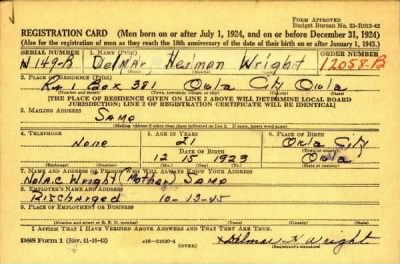 FORM APPROVED
Budget Bureau No. 33-R012-42
REGISTRATION CARD (Men born on or after July 1, 1924, and on or before December 31, 1924)
(Also for the registration of men as they reach the 18th anniversary of the date of their birth on or after January 1, 1943.)
SERIAL NUMBER 1. NAME (Print) ORDER NUMBER
N149-B Delmar Herman Wright 12058-B
(First) (Middle) (Last)
2. PLACE OF RESIDENCE (Print)
Box 381 Okla City Okla
(Number and street) (Town, township, village, or city) (County) (State)
[THE PLACE OF RESIDENCE GIVEN ON LINE 2 ABOVE WILL DETERMINE LOCAL BOARD
JURISDICTION; LINE 2 OF REGISTRATION CERTIFICATE WILL BE IDENTICAL]
3. MAILING ADDRESS
Same
(Mailing address if other than place indicated on line 2. If same, insert word same)
4. TELEPHONE 5. AGE IN YEARS 6. PLACE OF BIRTH
None 21 Okla City
DATE OF BIRTH (Town or county)
12 15 1923 Okla
(Exchange) (Number) (Mo.) (Day) (Yr.) (State or country)
7. NAME AND ADDRESS OF PERSON WHO WILL ALWAYS KNOW YOUR ADDRESS
Nola. C. Wright (Mother) Same
8. EMPLOYER'S NAME AND ADDRESS
Discharged 10-13-45
9. PLACE OF EMPLOYMENT OR BUSINESS
(Number and street or R. F. D. number) (Town) (County) (State)
I AFFIRM THAT I HAVE VERIFIED ABOVE ANSWERS AND THAT THEY ARE TRUE.
DSS Form 1 (Rev. 11-16-42) (OVER)
Delmar H Wright